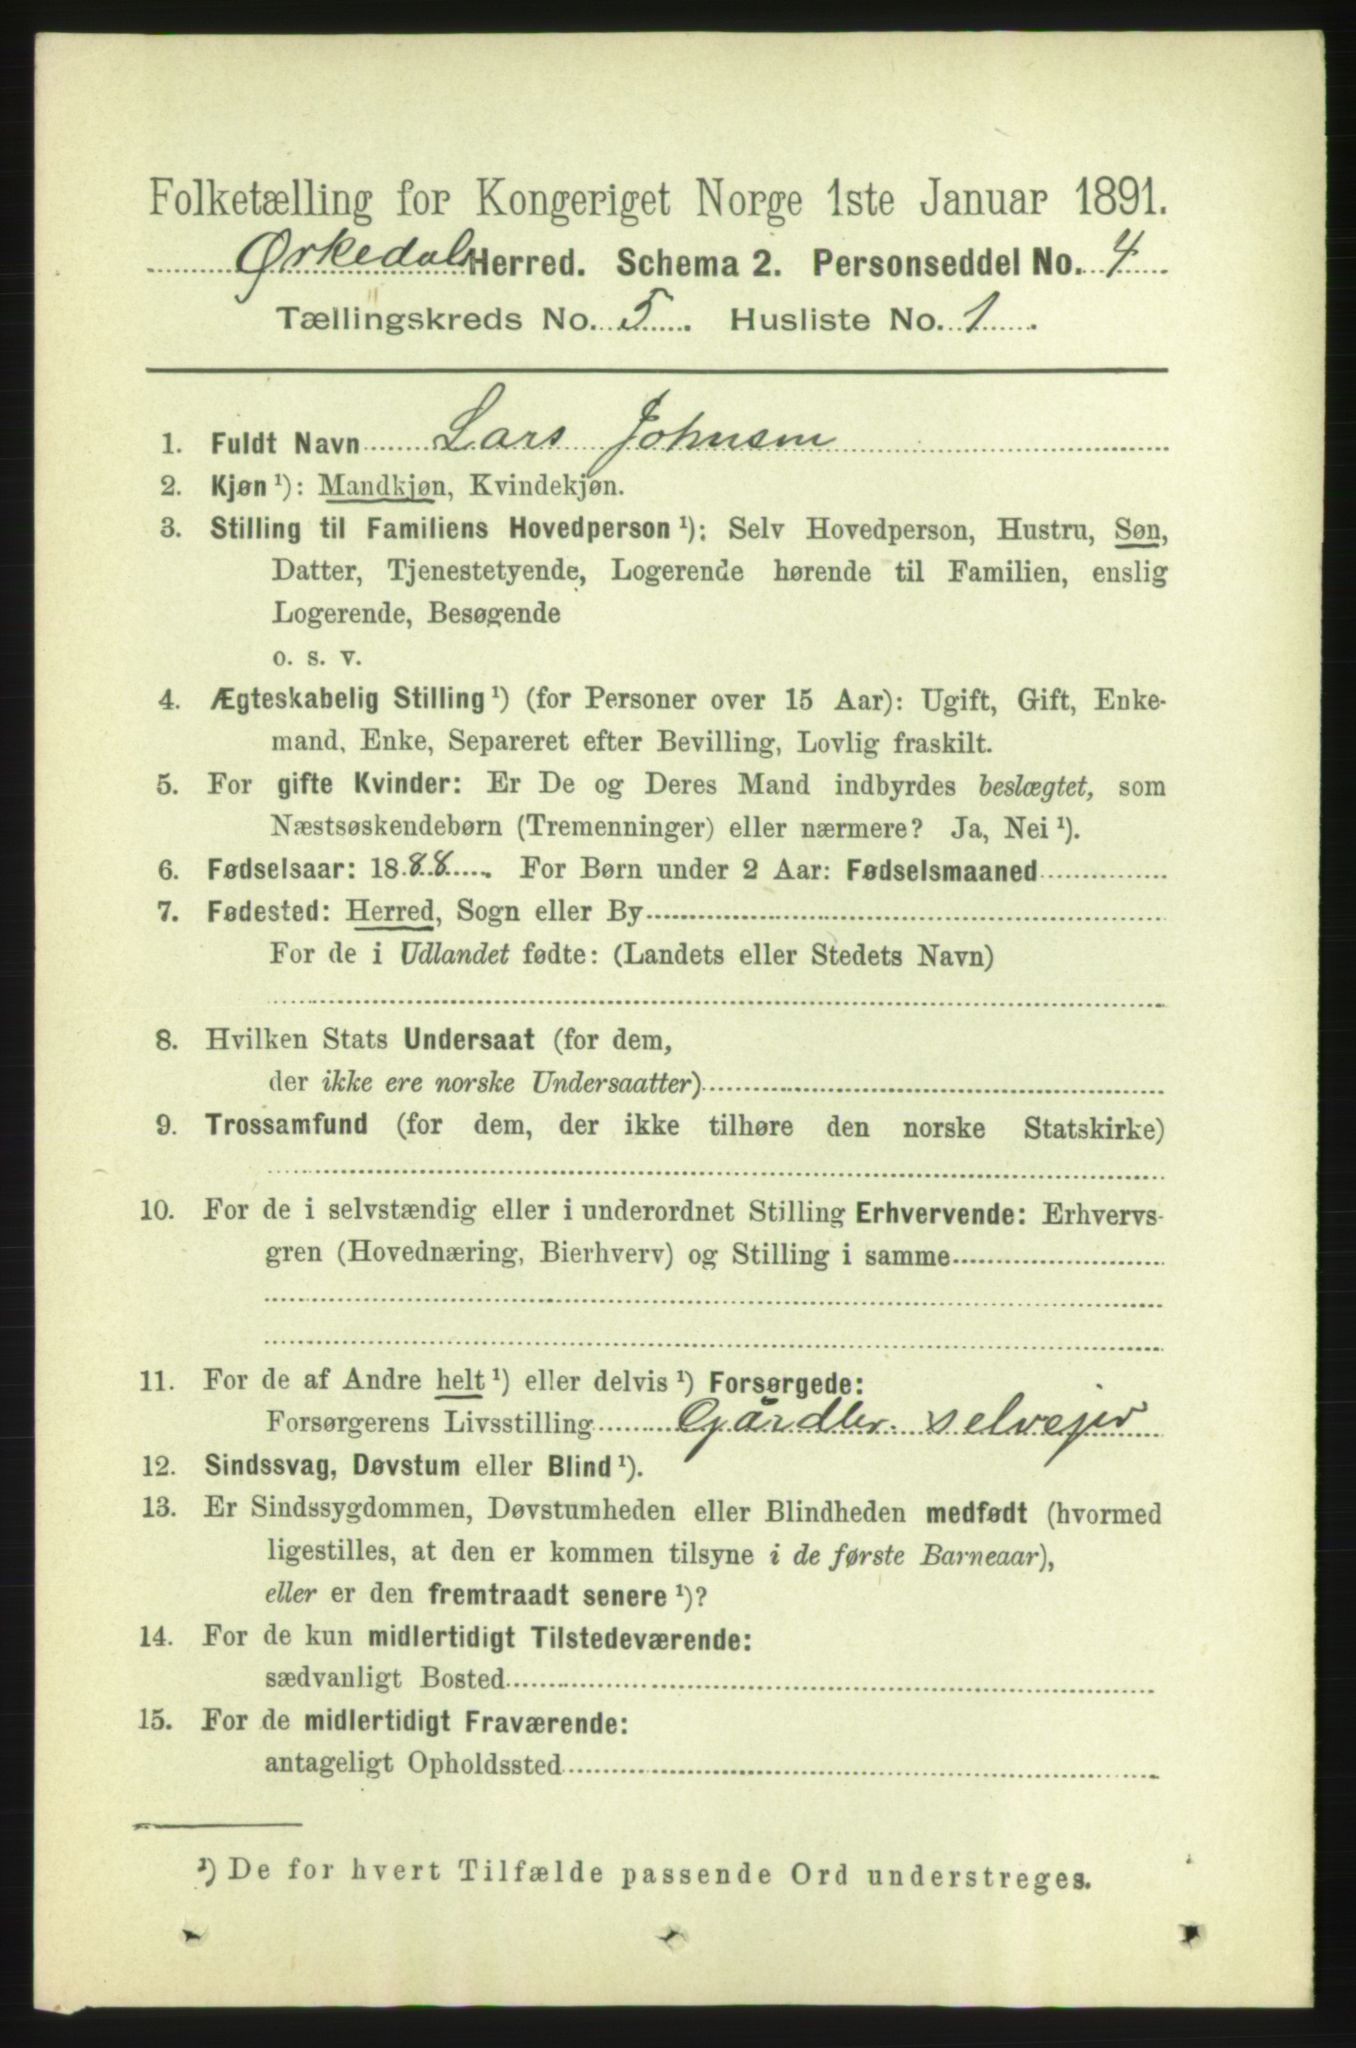 Folketælling for Kongeriget Norge 1ste Januar 1891.
Ørkedals Herred. Schema 2. Personseddel No. 4
Tællingskreds No. 5. Husliste No. 1.
1. Fuldt Navn Lars Johnsen
2. Kjøn ¹): Mandkjøn, Kvindekjøn.
3. Stilling til Familiens Hovedperson ¹): Selv Hovedperson, Hustru, Søn,
Datter, Tjenestetyende, Logerende hørende til Familien, enslig
Logerende, Besøgende
o. s. v.
4. Ægteskabelig Stilling ¹) (for Personer over 15 Aar): Ugift, Gift, Enke-
mand, Enke, Separeret efter Bevilling, Lovlig fraskilt.
5. For gifte Kvinder: Er De og Deres Mand indbyrdes beslægtet, som
Næstsøskendebørn (Tremenninger) eller nærmere? Ja, Nei ¹).
6. Fødselsaar: 1888. For Børn under 2 Aar: Fødselsmaaned
7. Fødested: Herred, Sogn eller By
For de i Udlandet fødte: (Landets eller Stedets Navn)
8. Hvilken Stats Undersaat (for dem,
der ikke ere norske Undersaatter)
9. Trossamfund (for dem, der ikke tilhøre den norske Statskirke)
10. For de i selvstændig eller i underordnet Stilling Erhvervende: Erhvervs-
gren (Hovednæring, Bierhverv) og Stilling i samme
11. For de af Andre helt ¹) eller delvis ¹) Forsørgede:
Forsørgerens Livsstilling Gårdbr. selvejer
12. Sindssvag, Døvstum eller Blind ¹).
13. Er Sindssygdommen, Døvstumheden eller Blindheden medfødt (hvormed
ligestilles, at den er kommen tilsyne i de første Barneaar),
eller er den fremtraadt senere ¹)?
14. For de kun midlertidigt Tilstedeværende:
sædvanligt Bosted
15. For de midlertidigt Fraværende:
antageligt Opholdssted
¹) De for hvert Tilfælde passende Ord understreges.